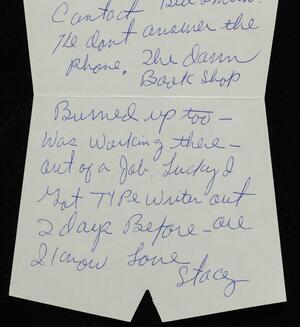 Contact
He dont answer the
phone. The damn
Book Shop
Burned up too —
Was working there —
out of a Job. Lucky I
Got TYPE Writer out
2 days Before – all
I know Love
Stacy